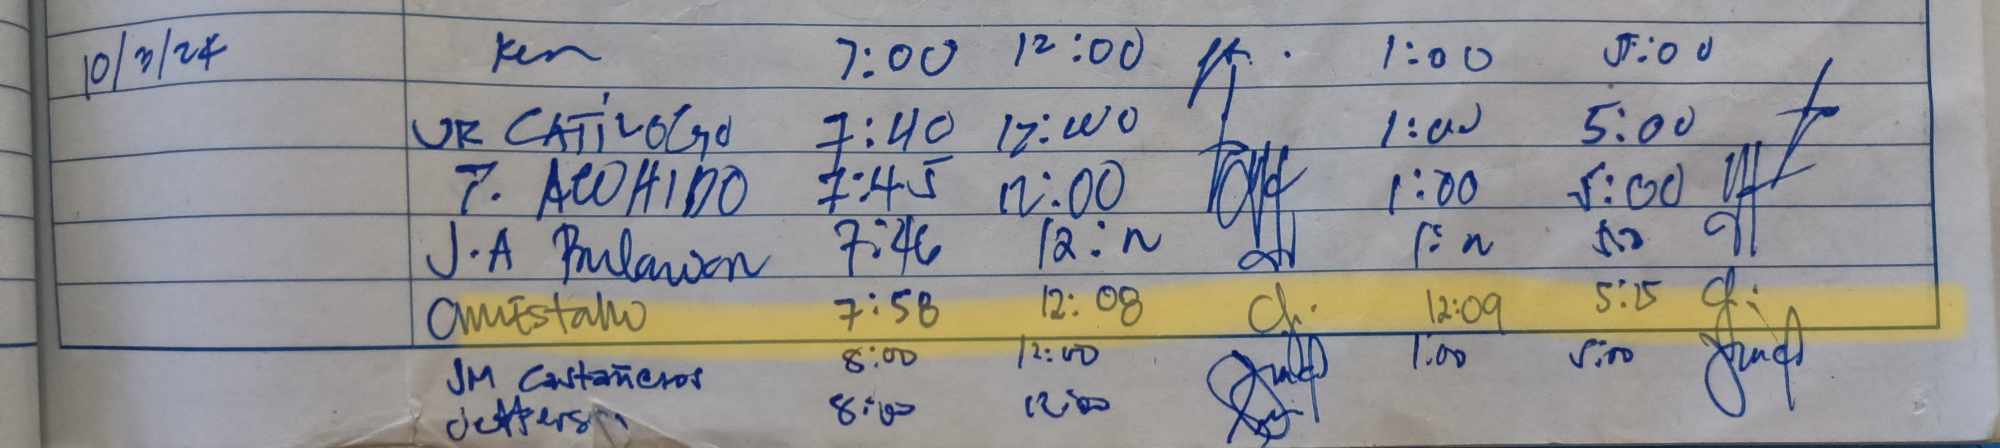 10/3/24 Ken 7:00 12:00 1:00 5:00
JR CATILOGO 7:40 12:00 1:00 5:00
T. ACOHIDO 7:45 12:00 1:00 5:00
J.A Bulawan 7:46 12:n 1:n 5:n
7:58 12:08 Ch. 12:09 5:15 Ch.
JM Castañeros 8:00 12:00 1:00 5:00
Jefferson 8:00 12:00